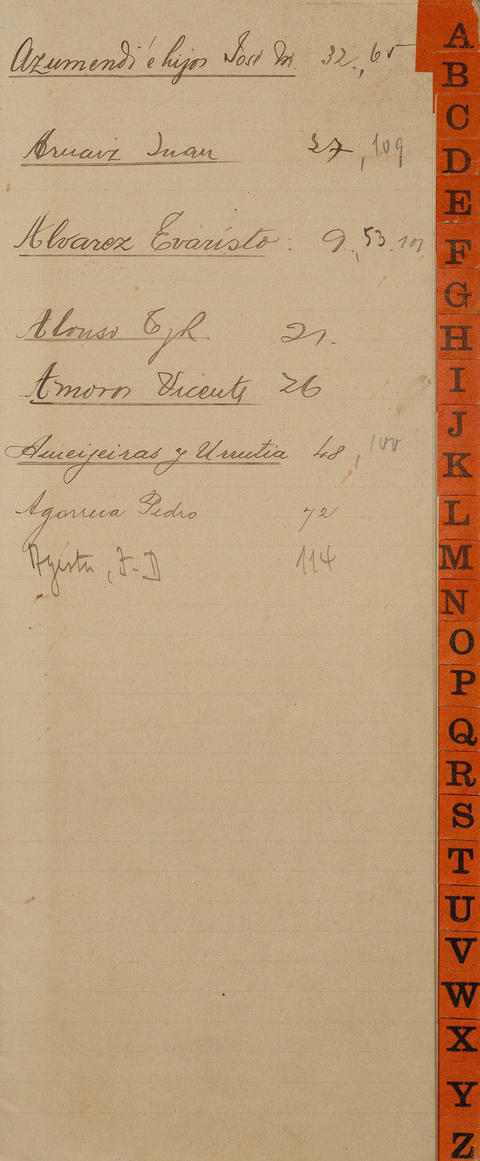 Azumendi é hijos José M. 32, 65
Arnaiz Juan 27, 109
Alvarez Evaristo. 9, 53. 107
Alonso 21.
Amoros Vicente 26
Ameijeiras y Urrutia 48, 100
Pedro 72
114
A
B
C
D
E
F
G
H
I
J
K
L
M
N
O
P
Q
R
S
T
U
V
W
X
Y
Z